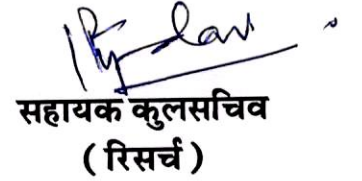 सहायक कुलसचिव
( रिसर्च )